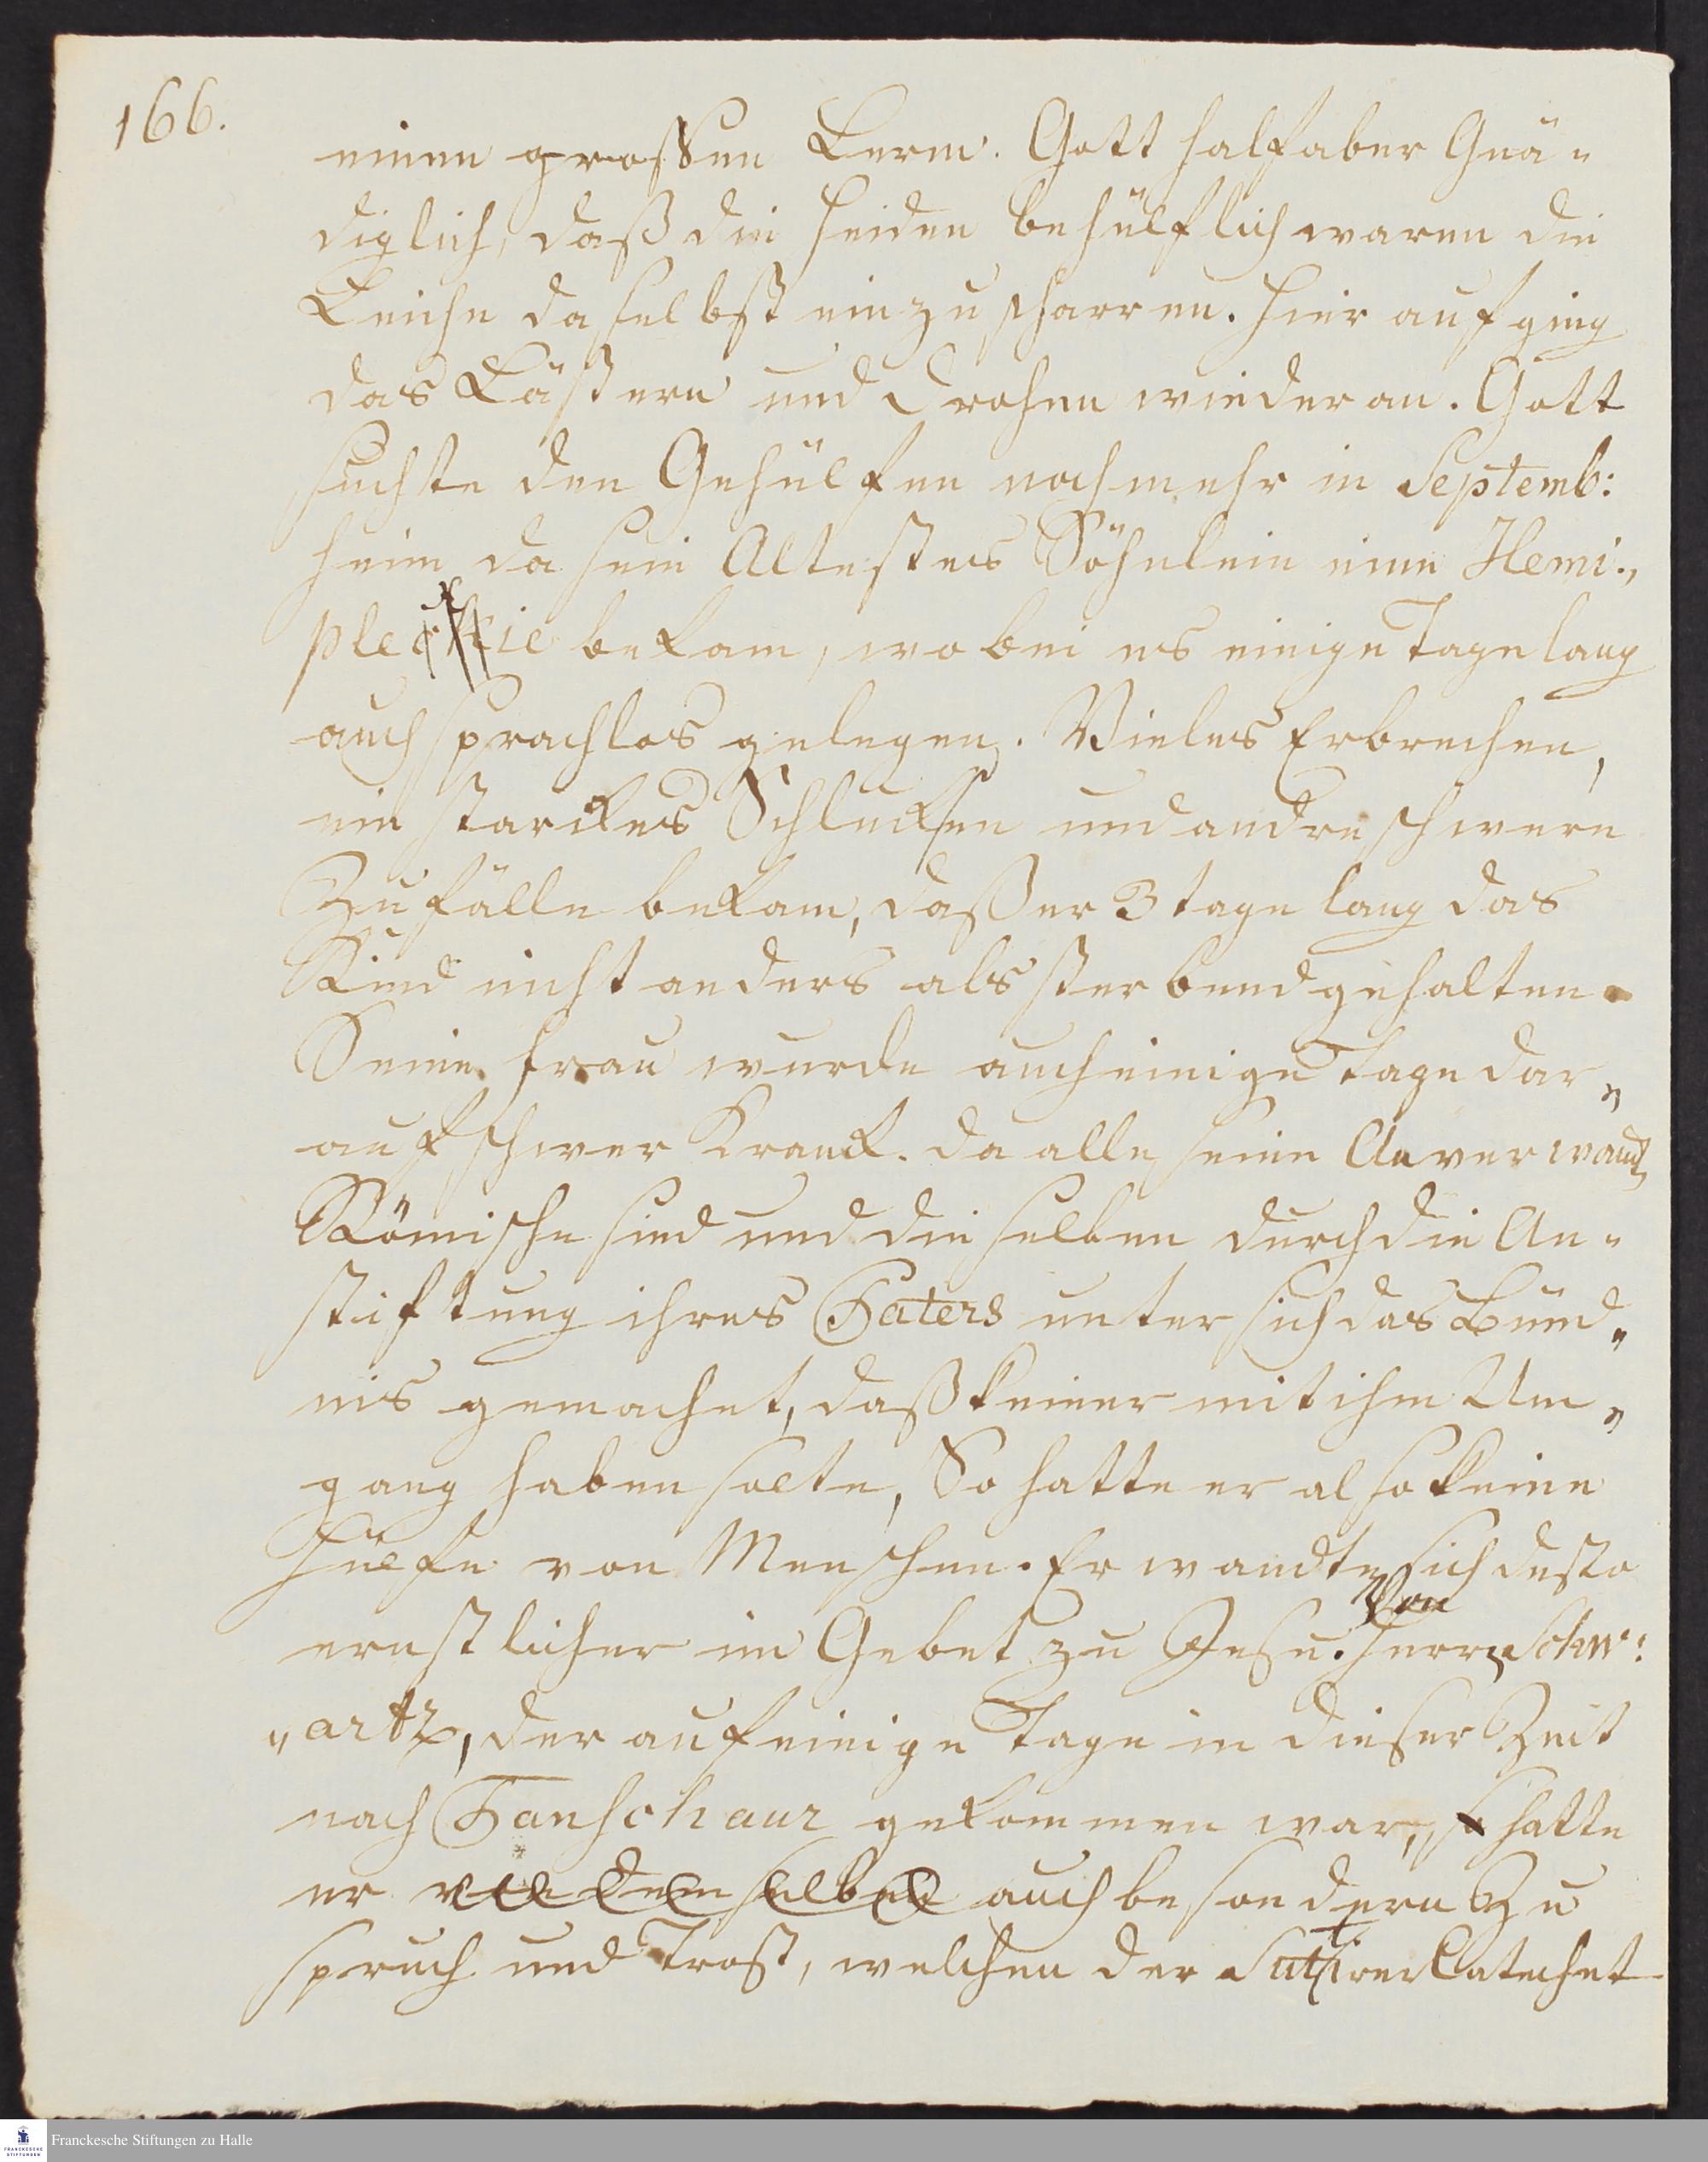 166.
einen grossen Lerm. Gott half aber Gnä-
diglich, daß die Heiden behülflich waren die
Leiche daselbst einzuscharren. Hierauf ging
das Lästern und Drohen wieder an. Gott
suchte den Gehülfen noch mehr in Septemb:
heim da sein Altestes Söhnlein eine Hemi-,
bekam, wobei es einige Tage lang
auch sprachlos gelegen. Vieles Erbrechen,
ein starckes Schlucksen und andre schwere
Zufälle bekam, daß er 3 tage lang das
Kind nicht anders als sterbend gehalten.
Seine Frau wurde auch einige Tage dar„
auf schwer Kranck. da alle seine Anverwandt
Römische sind und dieselben durch die An-
stiftung ihres Paters unter sich das Bünd„
nis gemachet, daß keiner mit ihm Um„
gang haben solte, So hatte er also keine
Hülfe von Menschen. Er wandte sich desto
ernstlicher im Gebet zu Jesu. Von Herrn Schw:
„artz, der auf einige Tage in dieser Zeit
nach Tanschaur gekommen war, hatte
er von demselben auch besondern Zu
spruch und Trost, welchen der Catechet
Franckesche Stiftungen zu Halle
FRANCKESCHE
STIFTUNGEN